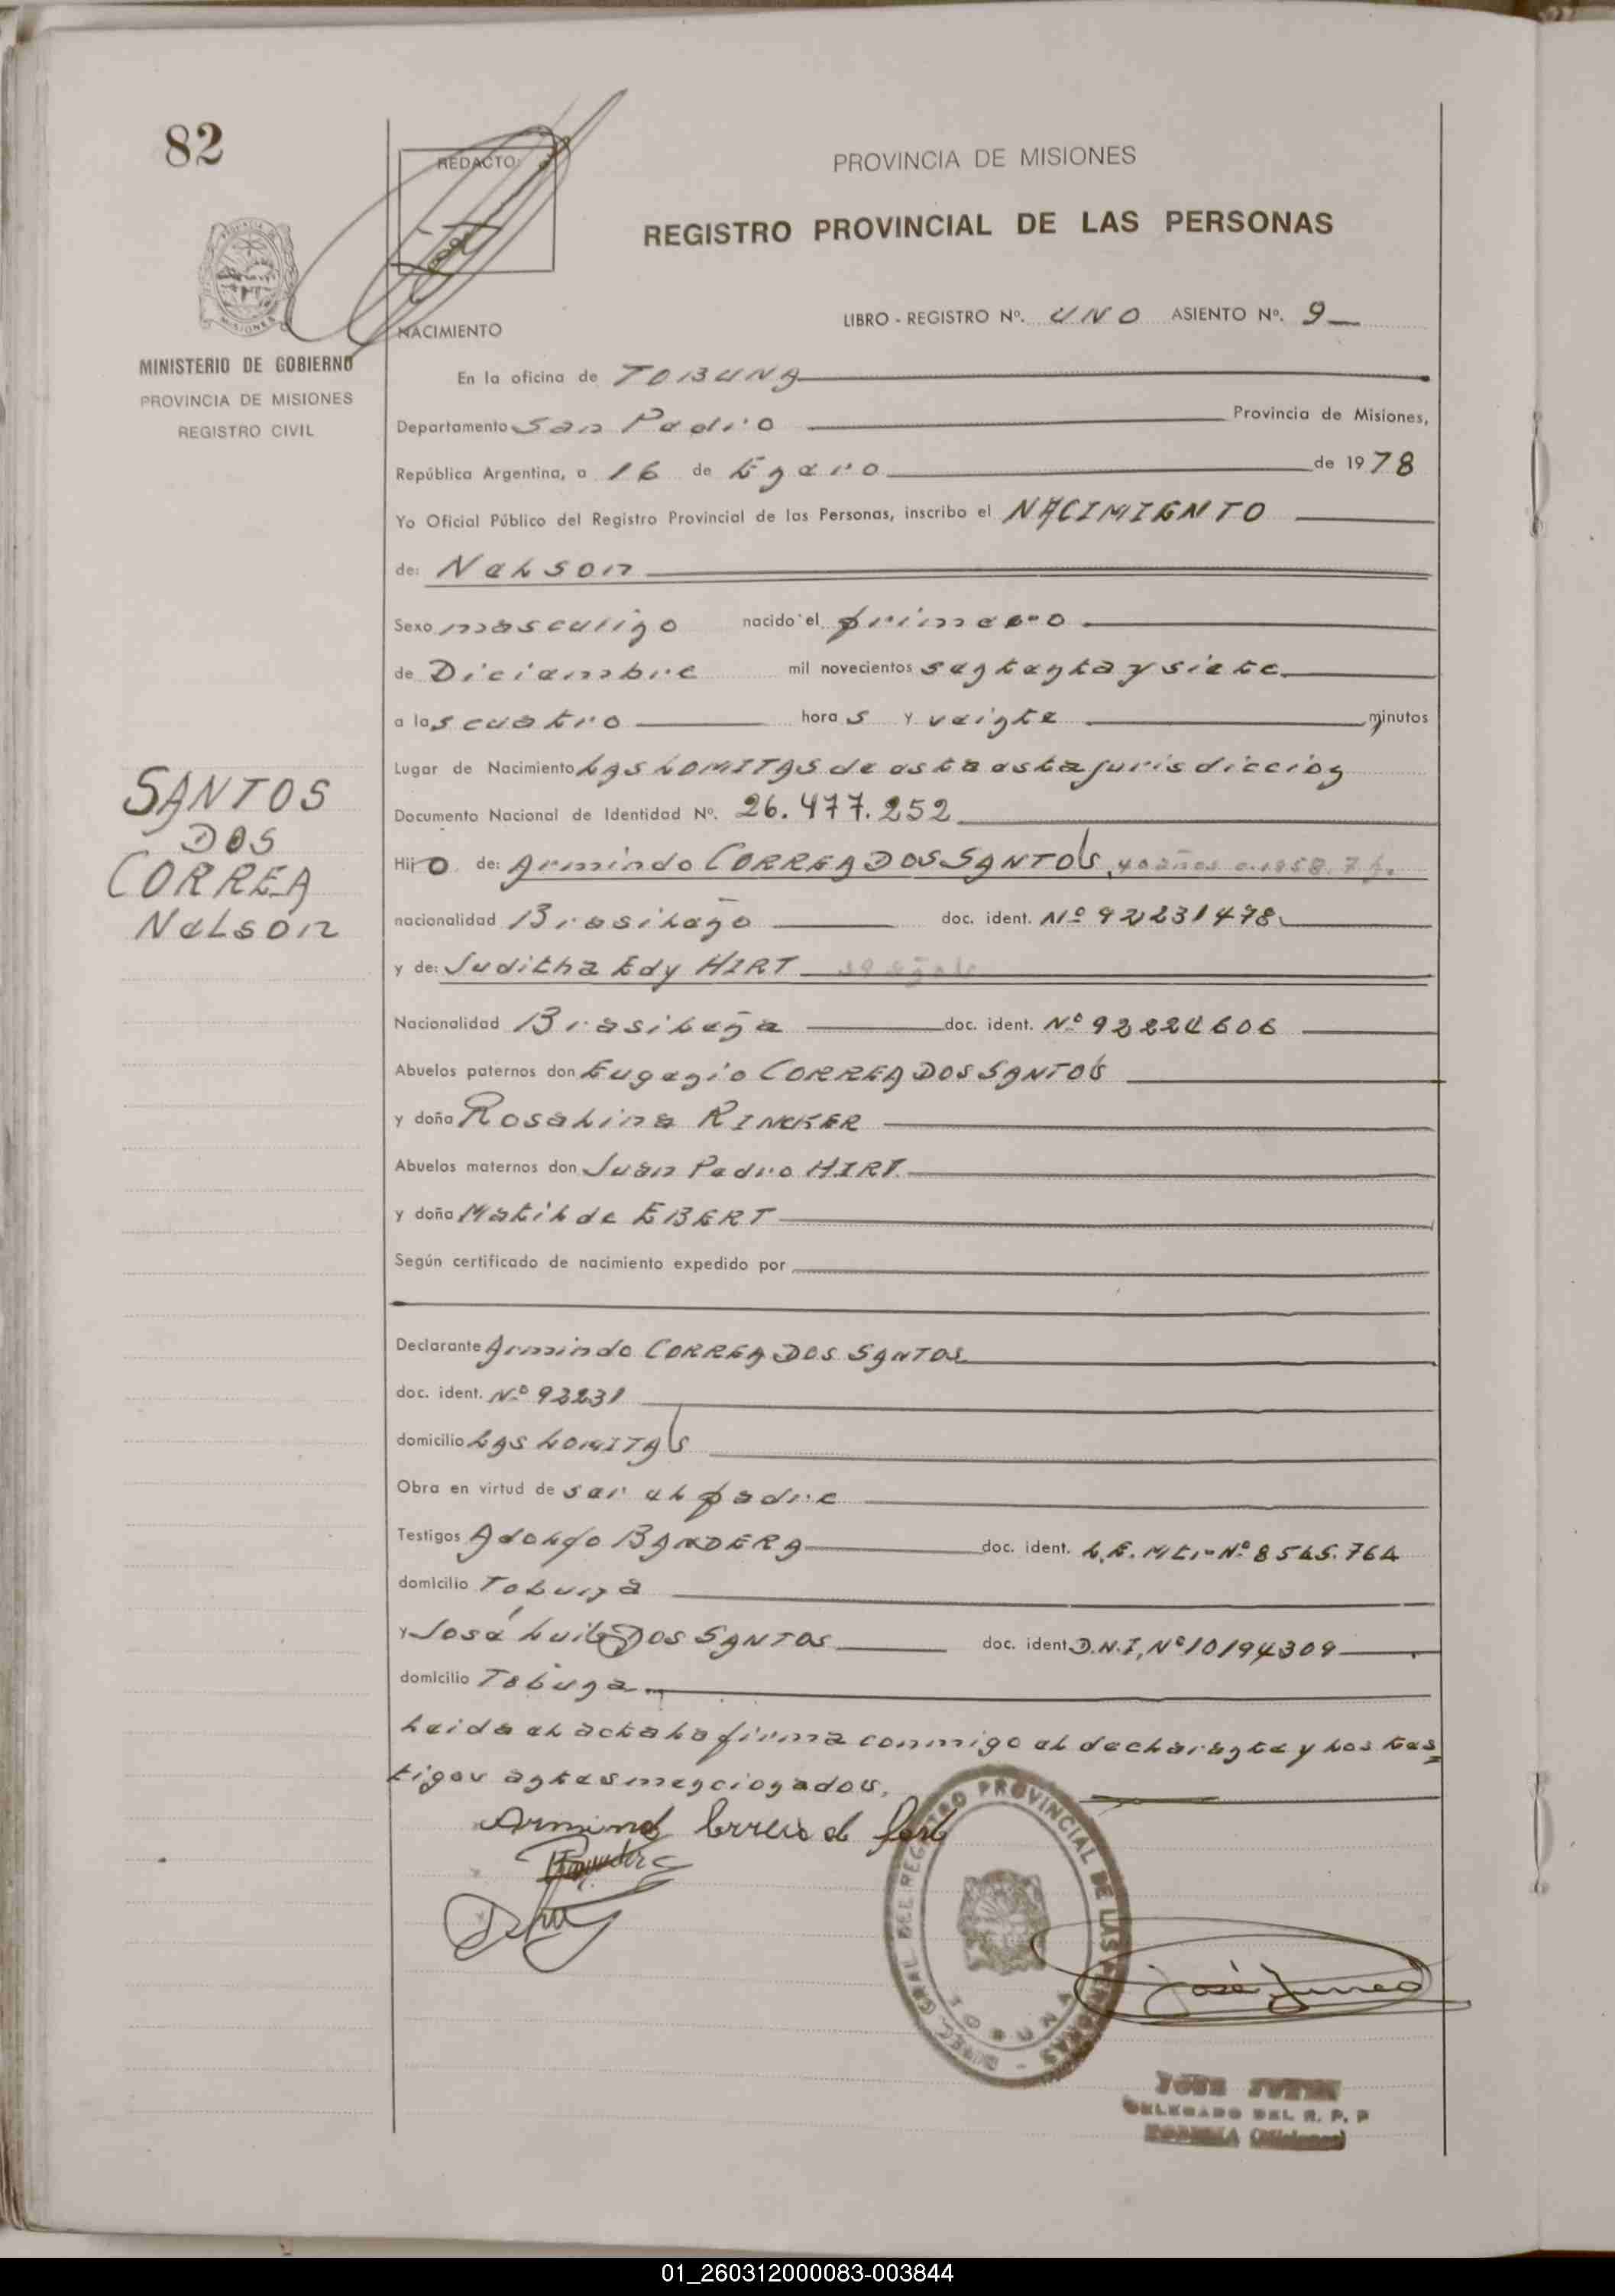 82
REDACTO:
PROVINCIA DE MISIONES
REGISTRO PROVINCIAL DE LAS PERSONAS
LIBRO - REGISTRO Nº. UNO ASIENTO Nº. 9
NACIMIENTO
MINISTERIO DE GOBIERNO
PROVINCIA DE MISIONES
REGISTRO CIVIL
En la oficina de TOBUNA
Departamento San Pedro Provincia de Misiones,
República Argentina, a 16 de Enero de 1978
Yo Oficial Público del Registro Provincial de las Personas, inscribo el NACIMIENTO
de: Nelson
Sexo masculino nacido el primero
de Diciembre mil novecientos setenta y siete
a las cuatro horas y veinte minutos
Lugar de Nacimiento LAS LOMITAS de esta esta jurisdiccion
Documento Nacional de Identidad Nº. 26.477.252
Hijo de: Armindo CORREA DOS SANTOS, 40 años
nacionalidad Brasileño doc. ident. Nº 92231478
y de: Juditha Edy HIRT
Nacionalidad Brasileña doc. ident. Nº 92224606
Abuelos paternos don Eugenio CORREA DOS SANTOS
y doña Rosalina RINCKER
Abuelos maternos don Juan Pedro HIRT
y doña Matilde EBERT
Según certificado de nacimiento expedido por
SANTOS
DOS
CORREA
Nelson
Declarante Armindo CORREA DOS SANTOS
doc. ident. Nº 92231
domicilio LAS LOMITAS
Obra en virtud de ser el padre
Testigos Adolfo BANDERA doc. ident. L.E. Mtr-Nº 8545.764
domicilio Tobuna
y José Luis DOS SANTOS doc. ident. D.N.I, Nº 10194309
domicilio Tobuna
Leida el acta la firma conmigo el declarante y los tes
tigos antes mencionados.
DIREC. GRAL. DEL REGISTRO PROVINCIAL DE LAS PERSONAS
DELEGADO DEL R. P. P
(Misiones)
01_260312000083-003844